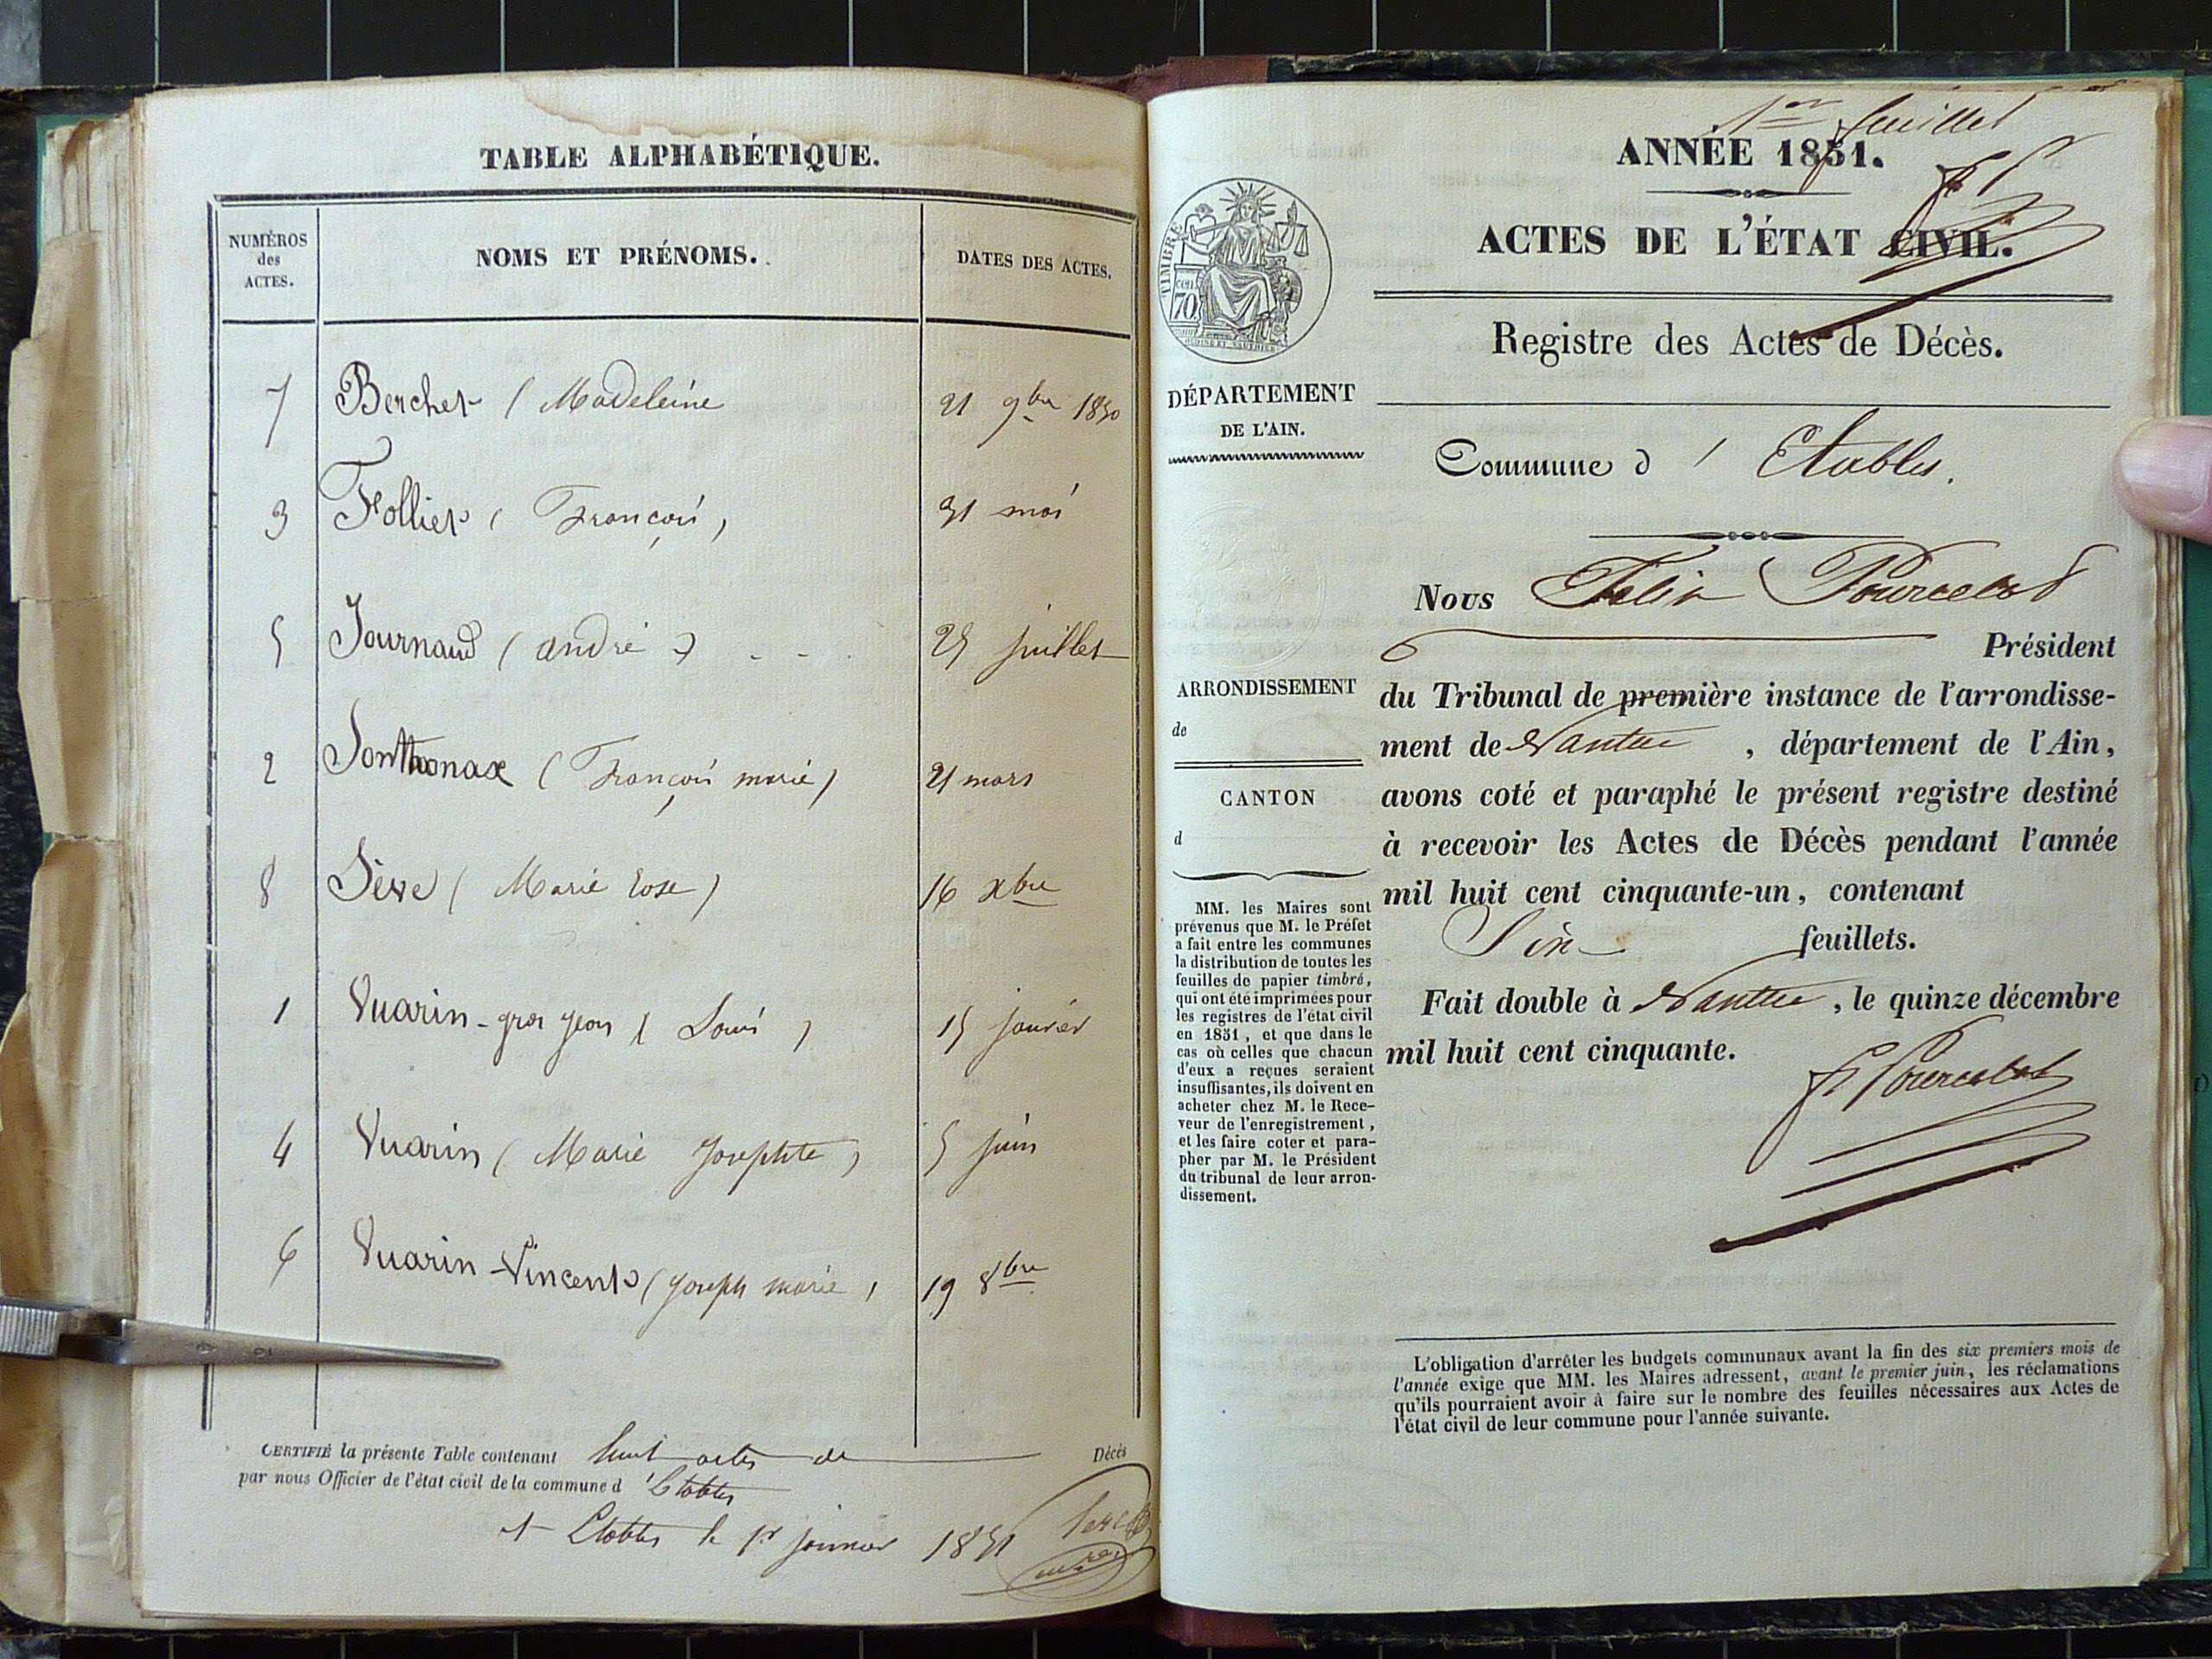 TABLE ALPHABÉTIQUE.
NUMÉROS des ACTES.
NOMS ET PRÉNOMS.
DATES DES ACTES.
7 Berchet (Madeleine 21 9bre 1850
3 Folliet (François) 31 mai
5 Journaud (andré) - - 25 juillet
2 Sonthonax (François marie) 21 mars
8 Sève (Marie Rose) 16 xbre
1 Vuarin-gros jean (Louis) 15 janvier
4 Vuarin (Marie Josephte) 5 juin
6 Vuarin-Vincent (joseph marie) 19 8bre
CERTIFIÉ la présente Table contenant huit actes de Décès
par nous Officier de l'état civil de la commune d'Etables
A Etables le 1er janvier 1851
1er feuillet
ANNÉE 1851.
ACTES DE L'ÉTAT CIVIL.
Registre des Actes de Décès.
TIMBRE
70 cen.
DÉPARTEMENT
DE L'AIN.
Commune d'Etables.
Nous Félix Pourcelot
Président
du Tribunal de première instance de l'arrondisse-
ment de Nantua, département de l'Ain,
avons coté et paraphé le présent registre destiné
à recevoir les Actes de Décès pendant l'année
mil huit cent cinquante-un, contenant
Six feuillets.
Fait double à Nantua, le quinze décembre
mil huit cent cinquante.
F. Pourcelot
ARRONDISSEMENT
de
CANTON
d
MM. les Maires sont
prévenus que M. le Préfet
a fait entre les communes
la distribution de toutes les
feuilles de papier timbré,
qui ont été imprimées pour
les registres de l'état civil
en 1851, et que dans le
cas où celles que chacun
d'eux a reçues seraient
insuffisantes, ils doivent en
acheter chez M. le Rece-
veur de l'enregistrement,
et les faire coter et para-
pher par M. le Président
du tribunal de leur arron-
dissement.
L'obligation d'arrêter les budgets communaux avant la fin des six premiers mois de
l'année exige que MM. les Maires adressent, avant le premier juin, les réclamations
qu'ils pourraient avoir à faire sur le nombre des feuilles nécessaires aux Actes de
l'état civil de leur commune pour l'année suivante.